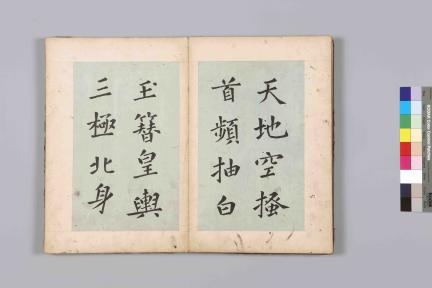 天地空搔
首頻抽白
玉簪皇輿
三極北身